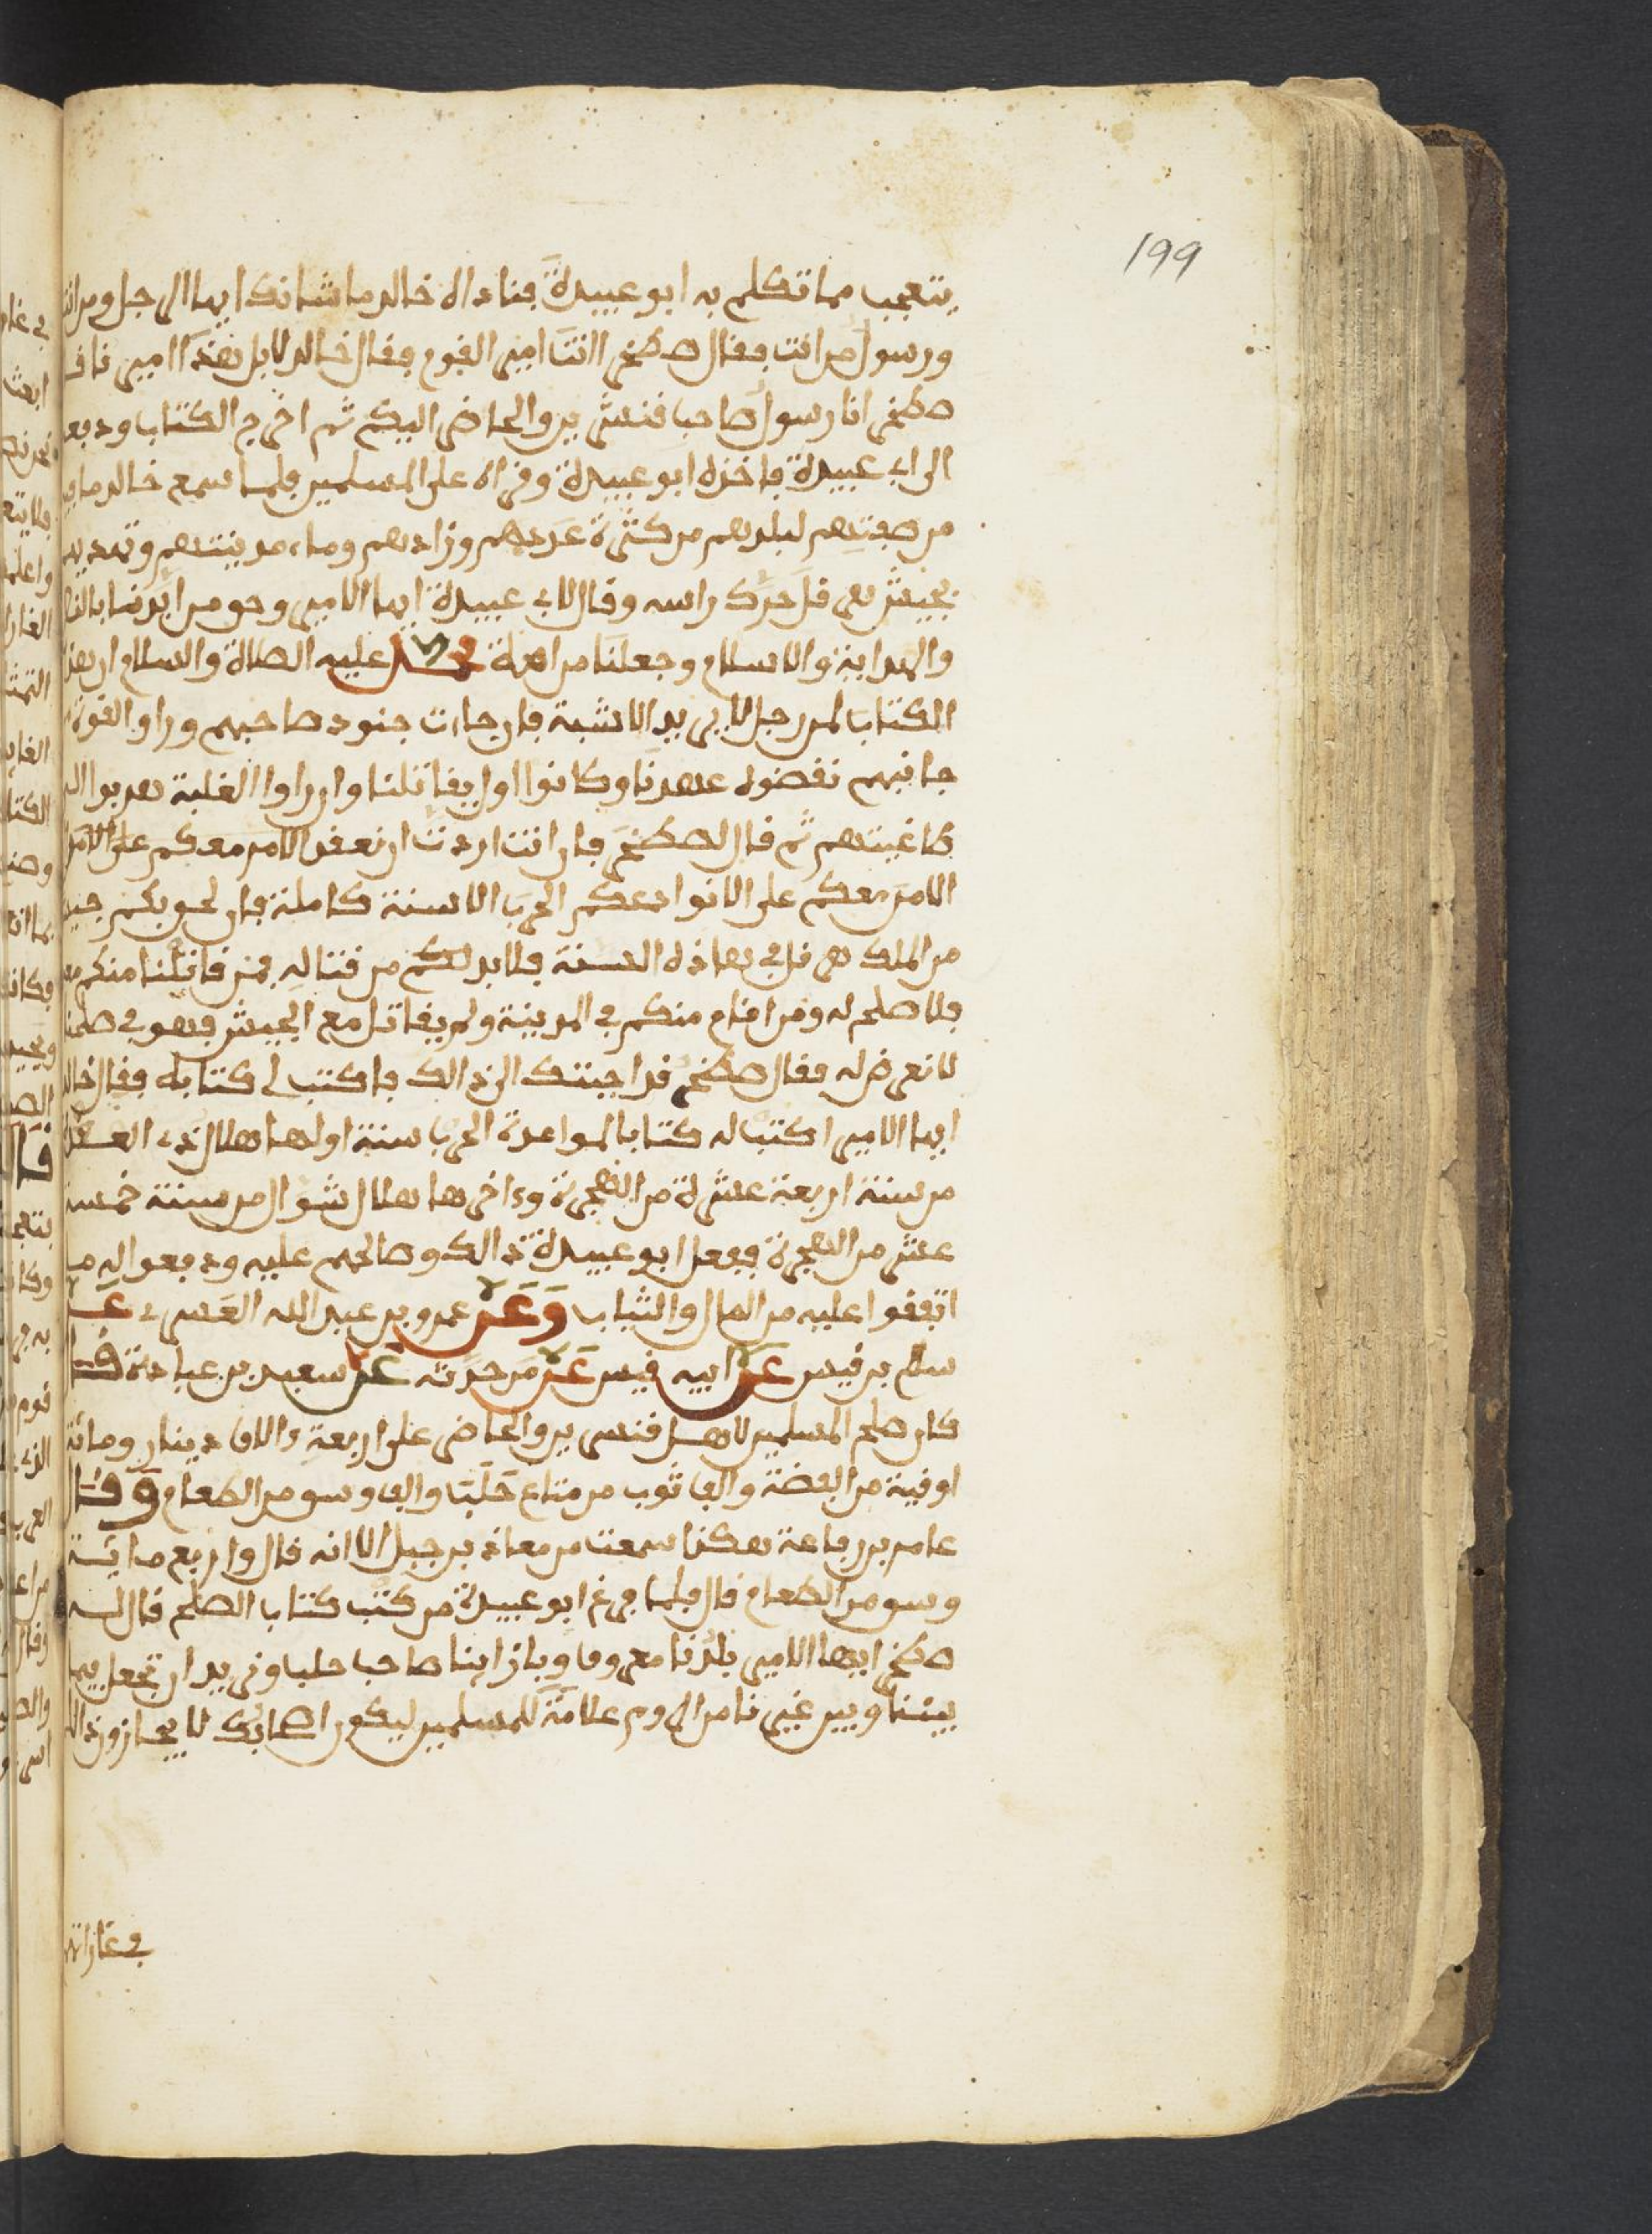 199
يتعجب مما تكلم به ابو عبيدة فناداه خالد ما شانك ايها الرجل ومن انت
ورسول من انت فقال صطخر اانت امير القوم فقال خالد لا بل هذا امير نا فقـ
صطخر انا رسول صاحب قنسرين والحاضر اليكم ثم اخرج الكتاب ودفعه
الى ابي عبيدة فاخذه ابو عبيدة وقراه على المسلمين فلما سمع خالد ما فيه
من صفتهم لبلدهم من كثرة عددهم وزادهم وماء مدينتهم وتهديدهم
بجيش هرقل حرك راسه وقال لابي عبيدة ايها الامير وحق من ايدنا بالنصر
والهداية والاسلام وجعلنا من امة محمد عليه الصلاة والسلام ان هذا
الكتاب لمن رجل لا يريد الا شبة فان جاءت جنود صاحبهم وراوا القوة
جانبهم نقضوا عهدنا وكانوا اول يقاتلنا وان راوا الغلبة هربوا الى
طاغيتهم ثم قال لصطخر فان انت اردت ان نعقد الامر معكم على الامر
الامر معكم على الا نوادعكم الحرب الا سنة كاملة فان لحق بكم جيش
من الملك هرقل في هاذه السنة فلا بد لكم من قتاله فمن قاتلنا منكم معه
فلا صلح له ومن اقام منكم في المدينة ولم يقاتل مع الجيش فهو في صلحنا
لا نعرض له فقال صطخر قد اجبتك الى ذالك فاكتب لي كتابا به فقال خالد
ايها الامير اكتب له كتابا لمواعدة الحرب سنة اولها هلال ذي القعدة
من سنة اربعة عشرة من الهجرة وءاخرها هلال شوال من سنة خمسة
عشر من الهجرة ففعل ابو عبيدة ذالك وصالحهم عليه ودفعوا له ما
اتفقوا عليه من المال والثياب وعن عمرو بن عبد الله العسري عن
سلم بن قيس عن ابيه قيس عن من حدثه عن سعيد بن عبادة قال
كان صلح المسلمين لاهل قنسرين والحاضر على اربعة ءالاف دينار ومائة
اوقية من الفضة والف ثوب من متاع حلب والف وسق من الطعام وقال
عامر بن رفاعة هكذا سمعت من معاذ بن جبل الا انه قال واربع مايئة
وسق من الطعام قال فلما فرغ ابو عبيدة من كتب كتاب الصلح قال له
صطخر ايها الامير بلدنا معروف وبازاينا صاحب حلب ونريد ان تجعل فيما
بيننا وبين غيرنا من الروم علامة للمسلمين ليكون اصحابك لا يجازون ذالك
في غاراتهم